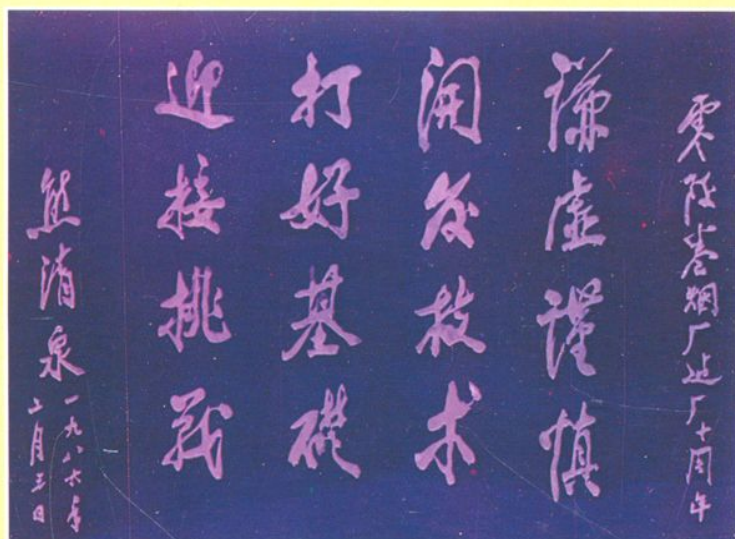 零陵卷烟厂建厂十周年
谦虚谨慎
開发技术
打好基礎
迎接挑战
熊清泉
一九八六年
二月三日